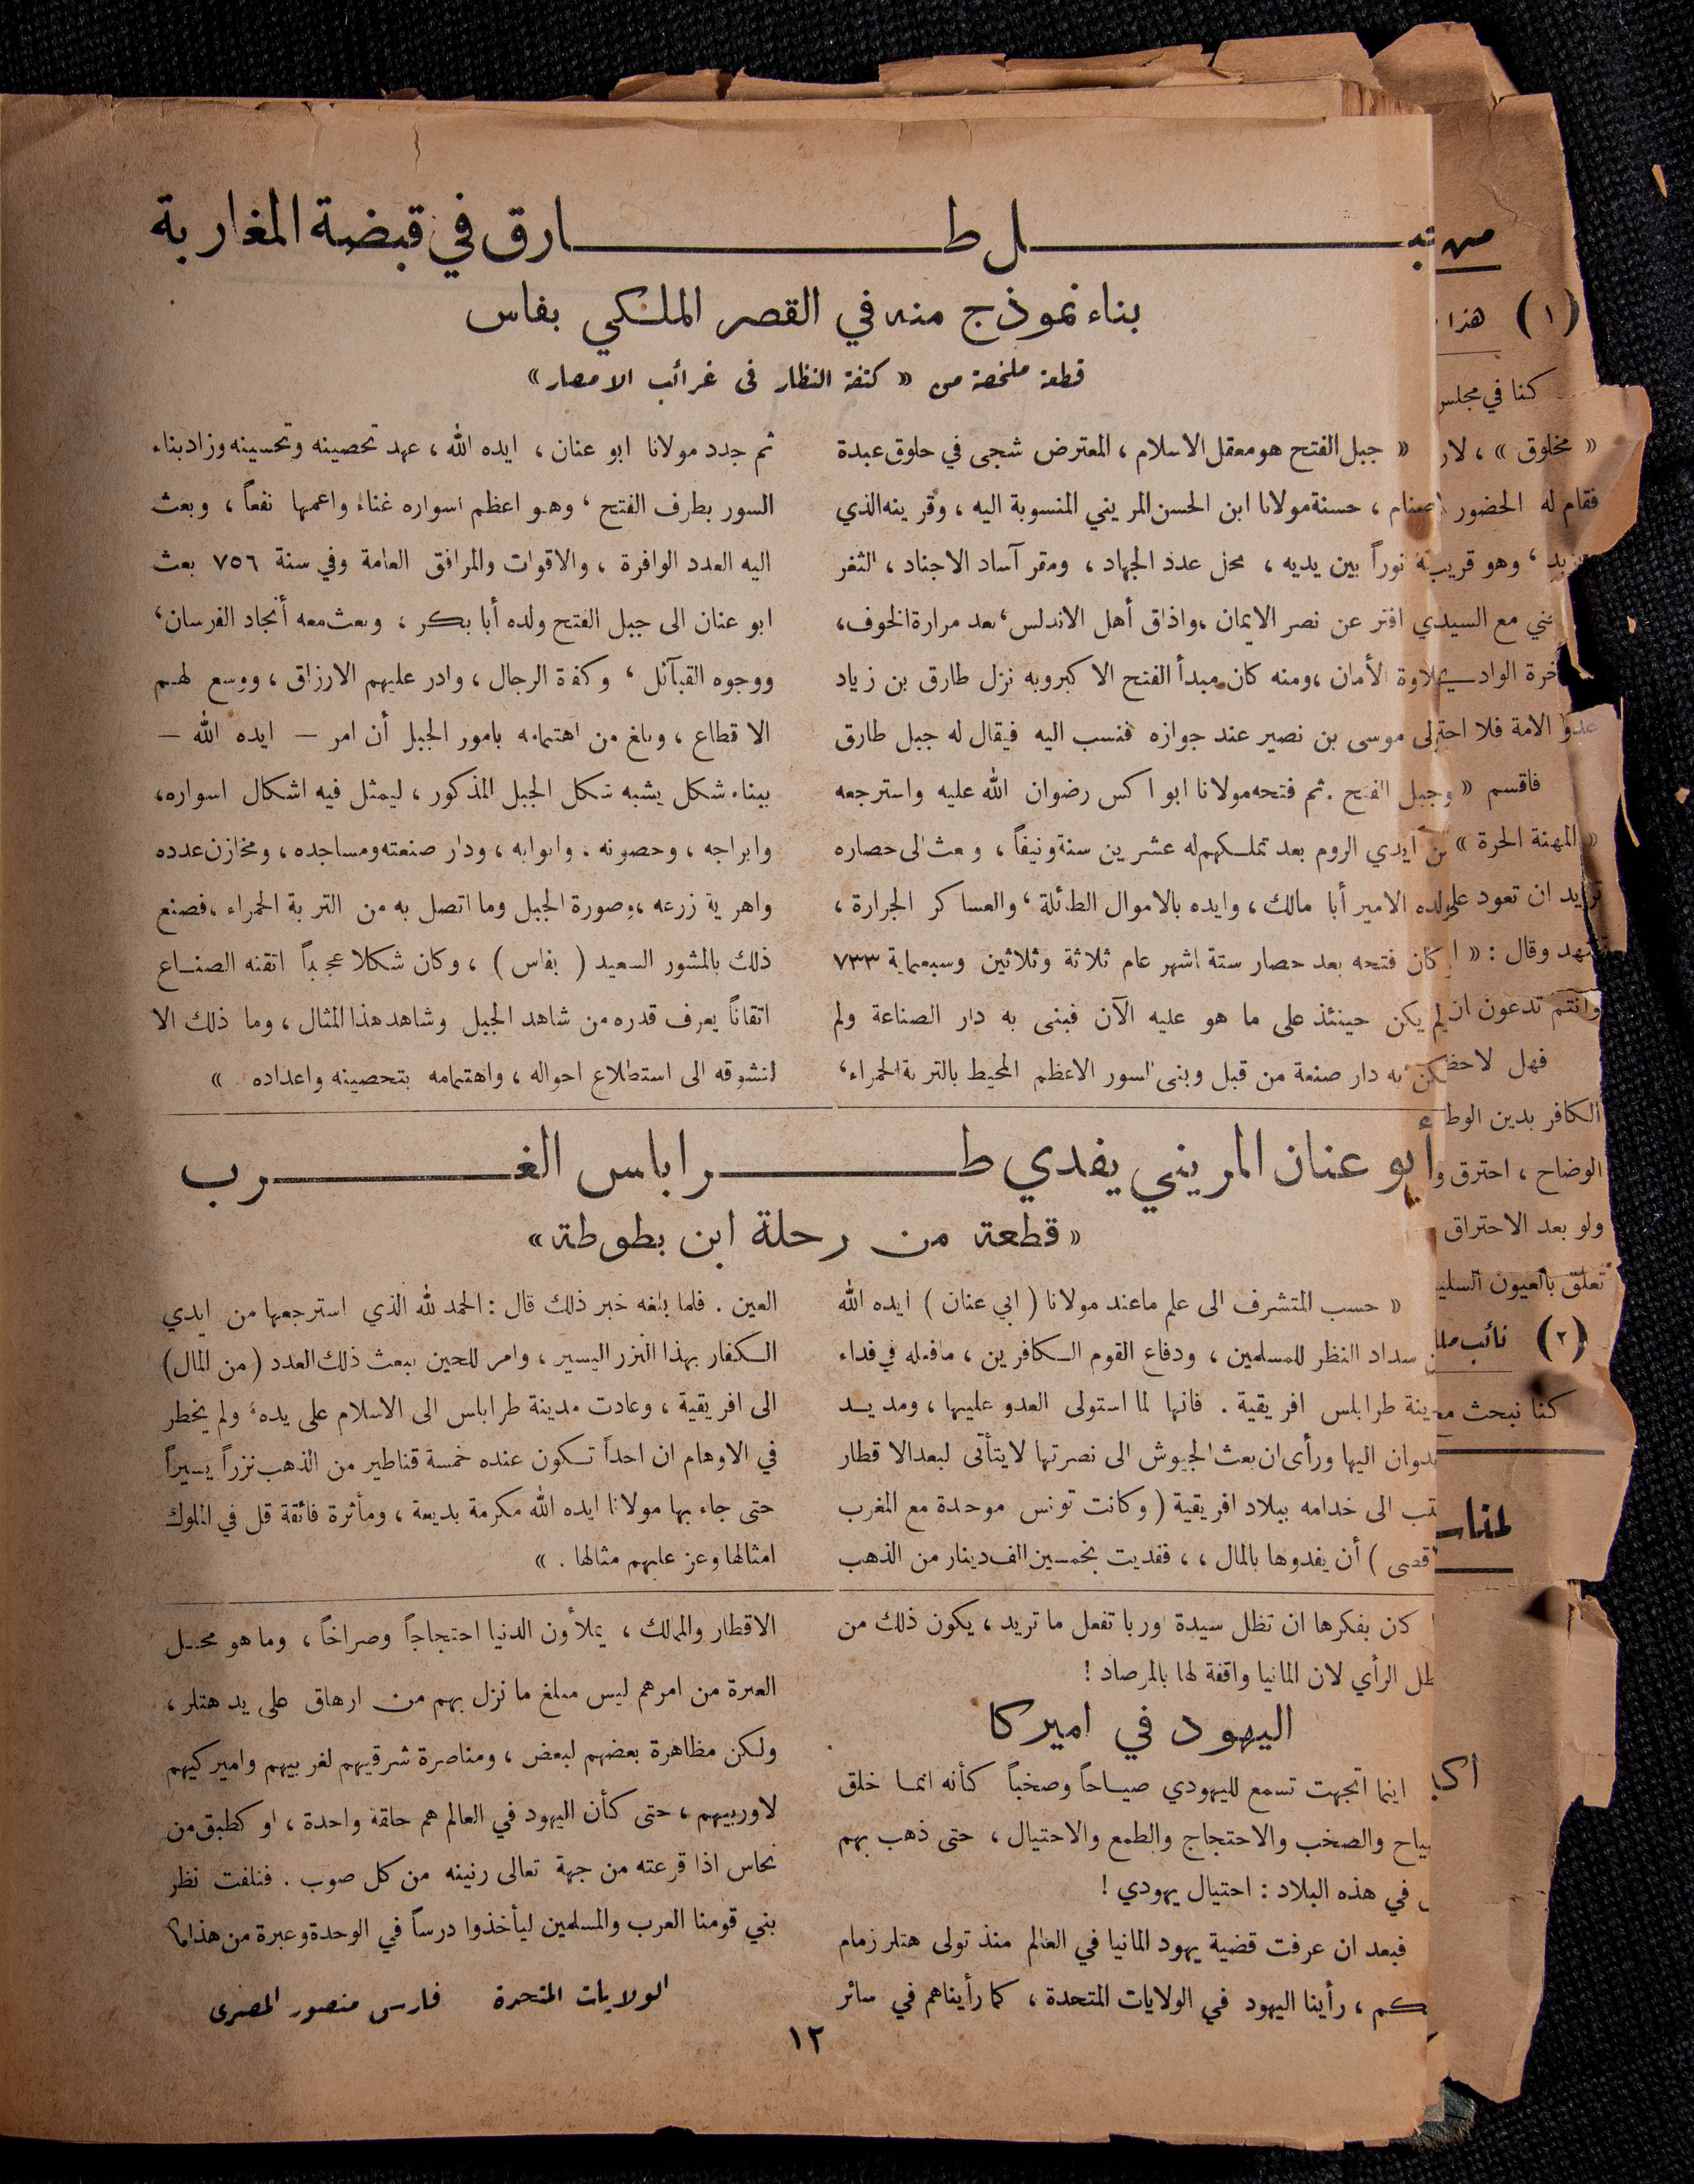 جبل طارق في قبضة المغاربة
بناء نموذج منه في القصر الملكي بفاس
قطعة ملخصة من « تحفة النظار فى غرائب الامصار»
« جبل الفتح هو معقل الاسلام ، المعترض شجى في حلوق عبدة
الاصنام ، حسنة مولانا ابن الحسن المريني المنسوبة اليه ، وقرينه الذي
نوراً بين يديه ، محل عدد الجهاد ، ومقر آساد الاجناد ، الثغر
افتر عن نصر الايمان ،واذاق أهل الاندلس، بعد مرارة الخوف،
حلاوة الأمان ،ومنه كان مبدأ الفتح الاكبروبه نزل طارق بن زياد
موسى بن نصير عند جوازه فنسب اليه فيقال له جبل طارق
وجبل الفتح . ثم فتحه مولانا ابو اكس رضوان الله عليه واسترجعه
من ايدي الروم بعد تملكهم له عشرين سنة ونيفاً ، وبعث الى حصاره
ولده الامير أبا مالك ، وايده بالاموال الطائلة ، والعساكر الجرارة ،
وكان فتحه بعد حصار ستة اشهر عام ثلاثة وثلاثين وسبعماية ٧٣٣
لم يكن حينئذ على ما هو عليه الآن فبنى به دار الصناعة ولم
يكن به دار صنعة من قبل وبنى السور الاعظم المحيط بالتربة الحمراء،
ثم جدد مولانا ابو عنان ، ايده الله ، عهد تحصينه وتحسينه وزاد بناء
السور بطرف الفتح ، وهو اعظم اسواره غناء واعمها نفعاً ، وبعث
اليه العدد الوافرة ، والاقوات والمرافق العامة وفي سنة ٧٥٦ بعث
ابو عنان الى جبل الفتح ولده أبا بكر ، وبعث معه أنجاد الفرسان،
ووجوه القبآئل ، وكفة الرجال ، وادر عليهم الارزاق ، ووسع لهم
الاقطاع ، وبلغ من اهتمامه بامور الجبل أن امر — ايده الله —
ببناء شكل يشبه شكل الجبل المذكور ، ليمثل فيه اشكال اسواره،
وابراجه ، وحصونه . وابوابه ، ودار صنعته ومساجده ، ومخازن عدده
واهرية زرعه ،وصورة الجبل وما اتصل به من التربة الحمراء ،فصنع
ذلك بالمشور السعيد ( بفاس ) ، وكان شكلا عجيباً اتقنه الصناع
اتقاناً يعرف قدره من شاهد الجبل وشاهد هذا المثال ، وما ذلك الا
لتشوقه الى استطلاع احواله ، واهتمامه بتحصينه واعداده »
ابو عنان المريني يفدي طرابلس الغرب
«قطعة من رحلة ابن بطوطة»
« حسب المتشرف الى علم ماعند مولانا ( ابي عنان ) ايده الله
سداد النظر للمسلمين ، ودفاع القوم الكافرين ، مافعله في فداء
مدينة طرابلس افريقية . فانها لما استولى العدو عليها ، ومد يد
العدوان اليها ورأى ان بعث الجيوش الى نصرتها لايتأتى لبعد الاقطار
كتب الى خدامه ببلاد افريقية ( وكانت تونس موحدة مع المغرب
الاقصى ) أن يفدوها بالمال ، ، ففديت بخمسين الف دينار من الذهب
العين . فلما بلغه خبر ذلك قال : الحمد لله الذي استرجعها من ايدي
الكفار بهذا النزر اليسير ، وامر للحين ببعث ذلك العدد (من المال)
الى افريقية ، وعادت مدينة طرابلس الى الاسلام على يده، ولم يخطر
في الاوهام ان احداً تكون عنده خمسة قناطير من الذهب نزراً يسيراً
حتى جاء بها مولانا ايده الله مكرمة بديعة ، ومأثرة فائقة قل في الملوك
امثالها وعز عليهم مثالها . »
كان بفكرها ان تظل سيدة اوربا تفعل ما تريد ، يكون ذلك من
الرأي لان المانيا واقفة لها بالمرصاد !
اليهود في اميركا
اينما اتجهت تسمع لليهودي صياحاً وصخباً كأنه انما خلق
للصياح والصخب والاحتجاج والطمع والاحتيال ، حتى ذهب بهم
في هذه البلاد : احتيال يهودي !
فبعد ان عرفت قضية يهود المانيا في العالم منذ تولى هتلر زمام
الحكم ، رأينا اليهود في الولايات المتحدة ، كما رأيناهم في سائر
الاقطار والممالك ، يملأون الدنيا احتجاجاً وصراخاً ، وما هو محل
العبرة من امرهم ليس مبلغ ما نزل بهم من ارهاق على يد هتلر ،
ولكن مظاهرة بعضهم لبعض ، ومناصرة شرقيهم لغربيهم واميركيهم
لاوربيهم ، حتى كأن اليهود في العالم هم حلقة واحدة ، او كطبق من
نحاس اذا قرعته من جهة تعالى رنينه من كل صوب . فنلفت نظر
بني قومنا العرب والمسلمين ليأخذوا درساً في الوحدة وعبرة من هذا
الولايات المتحدة فارس منصور المصرى
١٢
(١) هذا
كنا في مجلس
« مخلوق » ، لار
فقام له الحضور
وهو قريب
ني مع السيد
عدو الامة فلا
فاقسم «
« المهنة الحرة »
تريد ان تعود على
وقال : «
وانتم تدعون ان
فهل لاحظ
الكافر بدين الوط
الوضاح ، احترق و
ولو بعد الاحتراق
تعلق بالعيون السلي
(٢) نائب
كنا نبحث